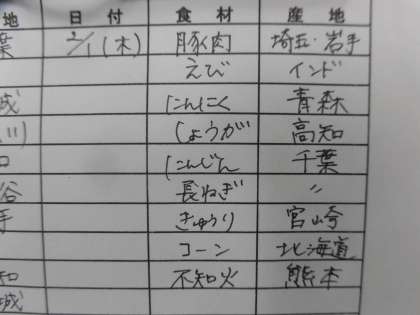 地 日付 食材 産地
葉 2/1(木) 豚肉 埼玉・岩手
えび インド
城 にんにく 青森
川) しょうが 高知
口 にんじん 千葉
谷 長ねぎ 〃
手 きゅうり 宮崎
コーン 北海道
知 不知火 熊本
城